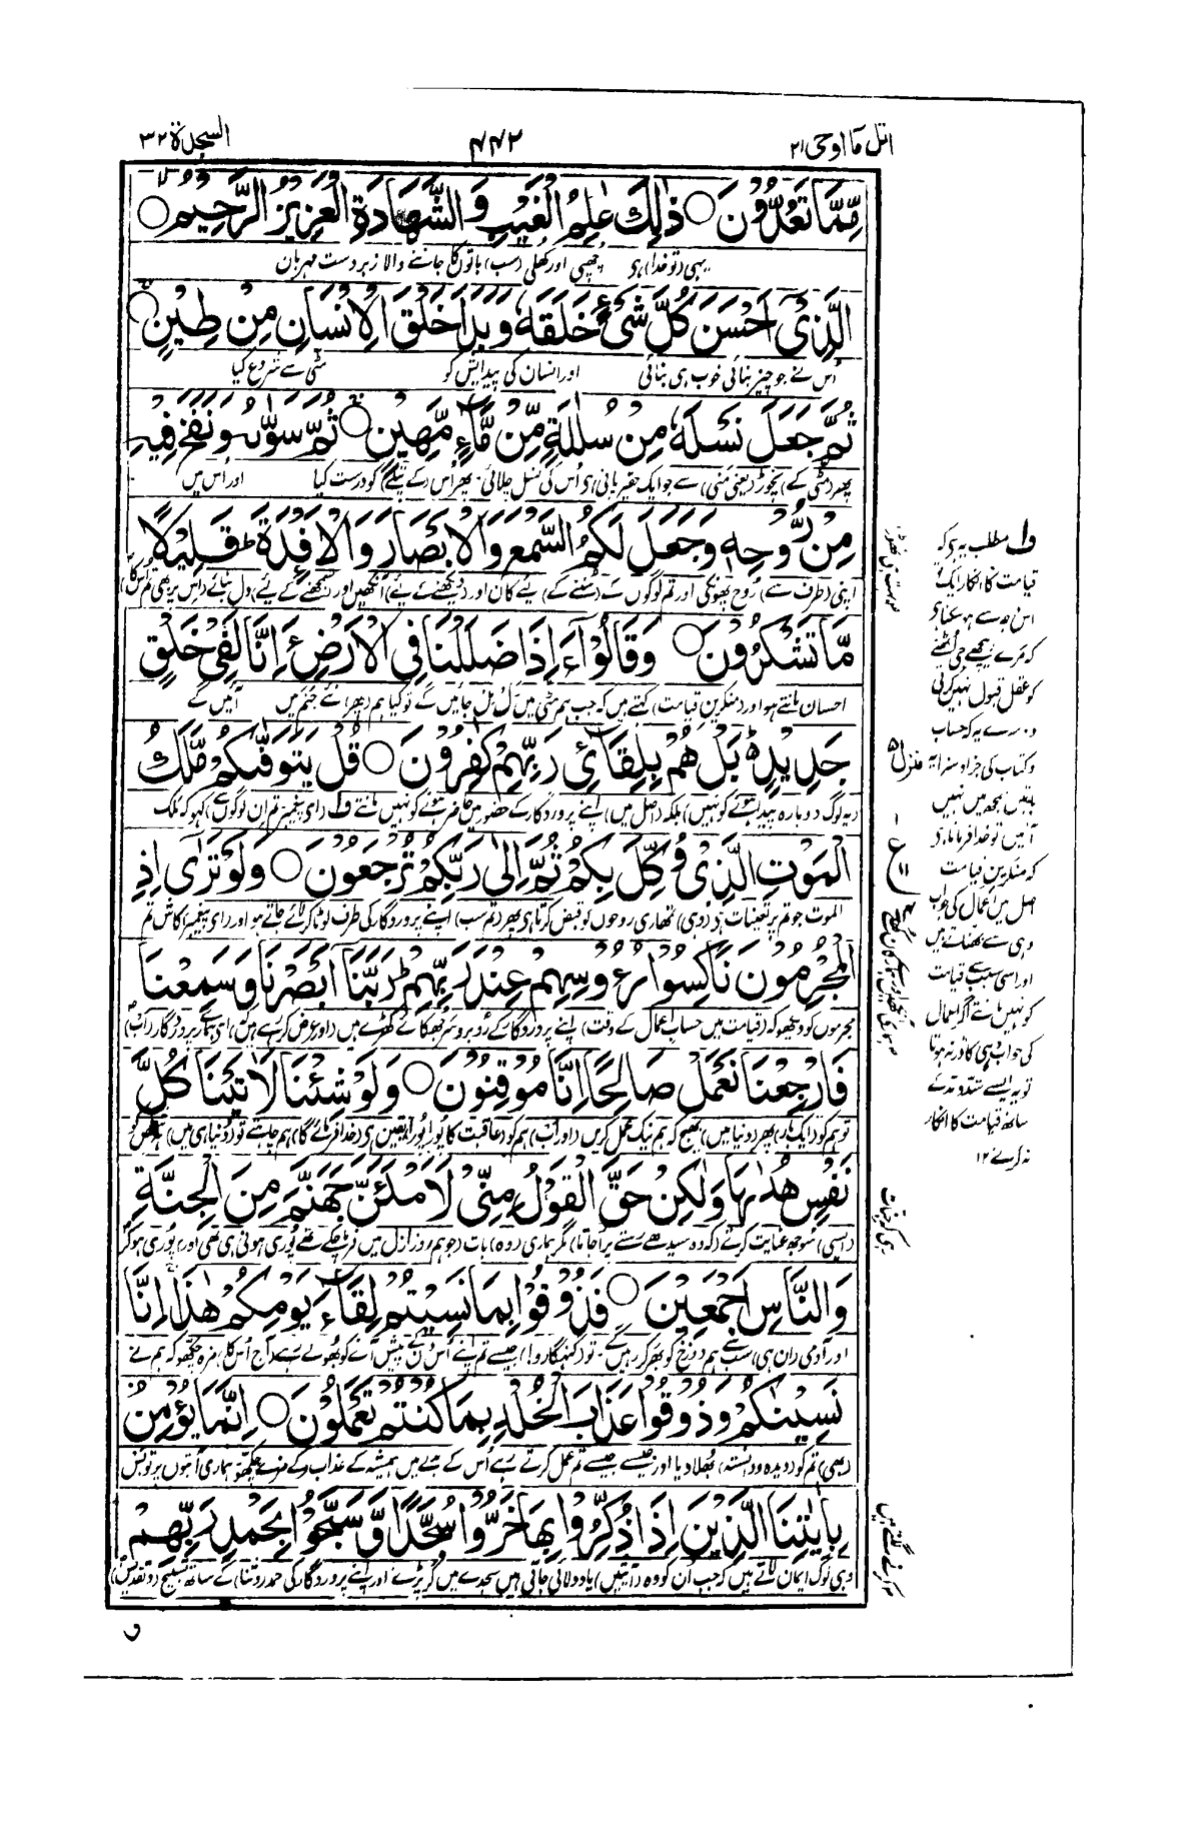 اتل مآ اوحی ۲۱
۶۶۲
السجدة ۳۲
مِّمَّا تَعُدُّوْنَ ○ ذٰلِكَ عٰلِمُ الْغَيْبِ وَ الشَّهَادَةِ الْعَزِيْزُ الرَّحِيْمُ ○
یہی (تو خدا) ہی چھپی اور کھلی (سب) باتوں کا جاننے والا زبردست مہربان
الَّذِيْٓ اَحْسَنَ كُلَّ شَيْءٍ خَلَقَهٗ وَ بَدَاَ خَلْقَ الْاِنْسَانِ مِنْ طِيْنٍ ○
اُس نے جو چیز بنائی خوب ہی بنائی اور انسان کی پیدایش کو مٹی سے شروع کیا
ثُمَّ جَعَلَ نَسْلَهٗ مِنْ سُلٰلَةٍ مِّنْ مَّآءٍ مَّهِيْنٍ ○ ثُمَّ سَوّٰىهُ وَ نَفَخَ فِيْهِ
پھر (مٹی کے) نچوڑ (یعنی منی) سے جو ایک حقیر پانی ہی اُس کی نسل چلائی۔ پھر اُس (کے پتلے) کو درست کیا اور اُس میں
مِنْ رُّوْحِهٖ وَ جَعَلَ لَكُمُ السَّمْعَ وَ الْاَبْصَارَ وَ الْاَفْـِٕدَةَ ؕ قَلِيْلًا
اپنی (طرف سے) رُوح پھونکی اور تم لوگوں کے (سننے کے) لیے کان اور (دیکھنے کے لیے) آنکھیں اور (سمجھنے کے لیے) دل بنائے (اس پر بھی تم) کا
مَّا تَشْكُرُوْنَ ○ وَ قَالُوْٓا ءَاِذَا ضَلَلْنَا فِي الْاَرْضِ ءَاِنَّا لَفِيْ خَلْقٍ
احسان مانتے ہو اور (منکرین قیامت) کہتے ہیں کہ جب ہم مٹی میں رل مل جائیں گے تو کیا ہم (پھر) نئے جنم میں آئیں گے
جَدِيْدٍ ؕ بَلْ هُمْ بِلِقَآئِ رَبِّهِمْ كٰفِرُوْنَ ○ قُلْ يَتَوَفّٰىكُمْ مَّلَكُ
(یہ لوگ دوبارہ پیدا ہونے کو نہیں) بلکہ (اصل میں) اپنے پروردگار کے حضور میں حاضر ہونے کو نہیں مانتے ف۱ (ای پیغمبر تم ان لوگوں سے) کہو کہ ملک
الْمَوْتِ الَّذِيْ وُكِّلَ بِكُمْ ثُمَّ اِلٰى رَبِّكُمْ تُرْجَعُوْنَ ○ وَ لَوْ تَرٰٓى اِذِ
الموت جو تم پر تعینات ہی (وہی) تمھاری روحوں کو قبض کرتا ہی پھر (تم سب) اپنے پروردگار کی طرف لوٹا کر لائے جاتے ہو اور (ای پیغمبر) کاش تم
الْمُجْرِمُوْنَ نَاكِسُوْا رُءُوْسِهِمْ عِنْدَ رَبِّهِمْ ؕ رَبَّنَآ اَبْصَرْنَا وَ سَمِعْنَا
مجرموں کو دیکھو کہ (قیامت میں حساب اعمال کے وقت) اپنے پروردگار کے رُو برو سر جھکائے کھڑے ہیں (اور عرض کر رہے ہیں) ای ہمارے پروردگار (اب)
فَارْجِعْنَا نَعْمَلْ صَالِحًا اِنَّا مُوْقِنُوْنَ ○ وَ لَوْ شِئْنَا لَاٰتَيْنَا كُلَّ
تو ہم کو (ایک بار) پھر (دنیا میں) بھیج کہ ہم نیک عمل کریں (اور اب) ہم کو (عاقبت کا) پورا پورا یقین ہی (خدا فرمائے گا) ہم چاہتے تو (دنیا ہی میں)
نَفْسٍ هُدٰىهَا وَ لٰكِنْ حَقَّ الْقَوْلُ مِنِّيْ لَاَمْلَـَٔنَّ جَهَنَّمَ مِنَ الْجِنَّةِ
(ایسی) سوجھ عنایت کرتے (کہ وہ سیدھے رستے پر آجاتا) مگر ہماری (وہ) بات (جو ہم روز ازل میں فرما چکے تھے) پوری ہونی ہی تھی اور) پوری ہو کر
وَ النَّاسِ اَجْمَعِيْنَ ○ فَذُوْقُوْا بِمَا نَسِيْتُمْ لِقَآءَ يَوْمِكُمْ هٰذَا ۚ اِنَّا
اور آدمی (ان ہی) سب سے ہم دوزخ کو بھر کر رہیں گے۔ تو (گنہگارو!) جیسے تم اپنے اُس دن کے پیش آنے کو بھولے رہے (آج اُس کا) مزہ چکھو کہ ہم نے
نَسِيْنٰكُمْ وَ ذُوْقُوْا عَذَابَ الْخُلْدِ بِمَا كُنْتُمْ تَعْمَلُوْنَ ○ اِنَّمَا يُؤْمِنُ
(بھی) تم کو (دیدہ و دانستہ) بھلا دیا اور جیسے جیسے تم عمل کرتے رہے اُس کے بدلے میں ہمیشہ کے عذاب کے مزے چکھو ہماری آیتوں پر تو بس
بِاٰيٰتِنَا الَّذِيْنَ اِذَا ذُكِّرُوْا بِهَا خَرُّوْا سُجَّدًا وَّ سَبَّحُوْا بِحَمْدِ رَبِّهِمْ
وہی لوگ ایمان لاتے ہیں کہ جب اُن کو وہ (آیتیں) یاد دلائی جاتی ہیں سجدے میں گر پڑتے اور اپنے پروردگار کی حمد (وثنا) کے ساتھ تسبیح (وتقدیس)
ف۱ مطلب یہ ہی کہ
قیامت کا انکار ایک تو
اس وجہ سے ہو سکتا ہی
کہ مرے پیچھے جی اُٹھنے
کو عقل قبول نہیں کرتی
دوسرے یہ کہ حساب
وکتاب کی جزا و سزا یہ
باتیں سمجھ میں نہیں
آئیں تو خدا فرماتا ہی
کہ منکرین قیامت
اصل میں اعمال کی جواب
دہی سے گھبراتے ہیں
اور اسی سبب سے قیامت
کو نہیں مانتے اگر اعمال
کی جوابدہی کا ڈر نہ ہوتا
تو یہ ایسے شد و مد کے
ساتھ قیامت کا انکار
نہ کرتے ۱۲
منزل ۵
ع
۱۱